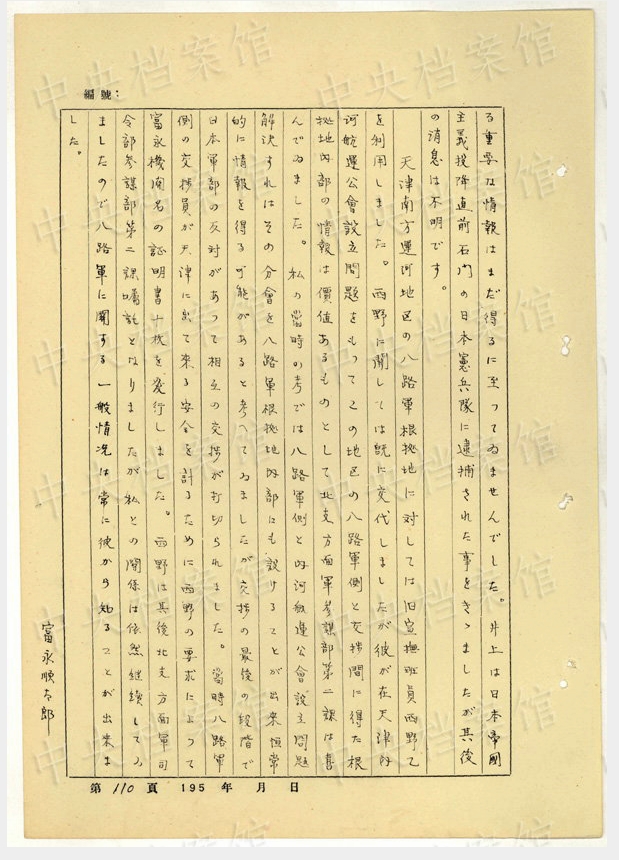 編號：
る重要な情報はまだ得るに至つてゐませんでした。井上は日本帝國
主義投降直前石門の日本憲兵隊に逮捕された事をきゝましたが其後
の消息は不明です。
天津南方運河地区の八路軍根拠地に対しては旧宣撫班員西野て
を利用しました。西野に関しては既に交代しましたが彼が在天津内
河航運公會設立問題をもつてこの地区の八路軍側と交捗間に得た根
拠地内部の情報は價値あるものとして北支方面軍参謀部第二課は喜
んでゐました。私の當時の考では八路軍側と内河航運公會設立問題
解決すればその分會を八路軍根拠地内部にも設けることが出来恒常
的に情報を得る可能があると考へてゐましたが交捗の最後の段階で
日本軍部の反対があつて相互の交捗が打切られました。當時八路軍
側の交捗員が天津に出て来る安全を計るために西野の要求によつて
富永機関名の証明書十枚を発行しました。西野は其後北支方面軍司
令部参謀部第二課嘱託となりましたが私との関係は依然継続してゐ
ましたので八路軍に関する一般情况は常に彼から知ることが出来ま
した。
富永順太郎
第 110 頁 195 年 月 日
中央档案馆